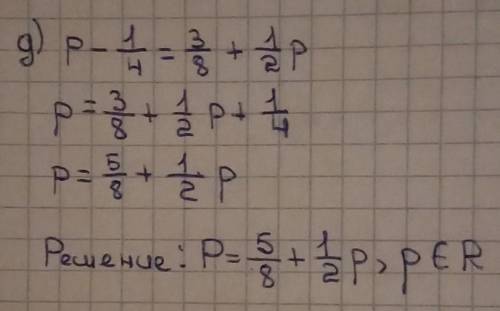 д) p - 1/4 = 3/8 + 1/2 p
p = 3/8 + 1/2 p + 1/4
p = 5/8 + 1/2 p
Решение: P = 5/8 + 1/2 p, p ∈ R